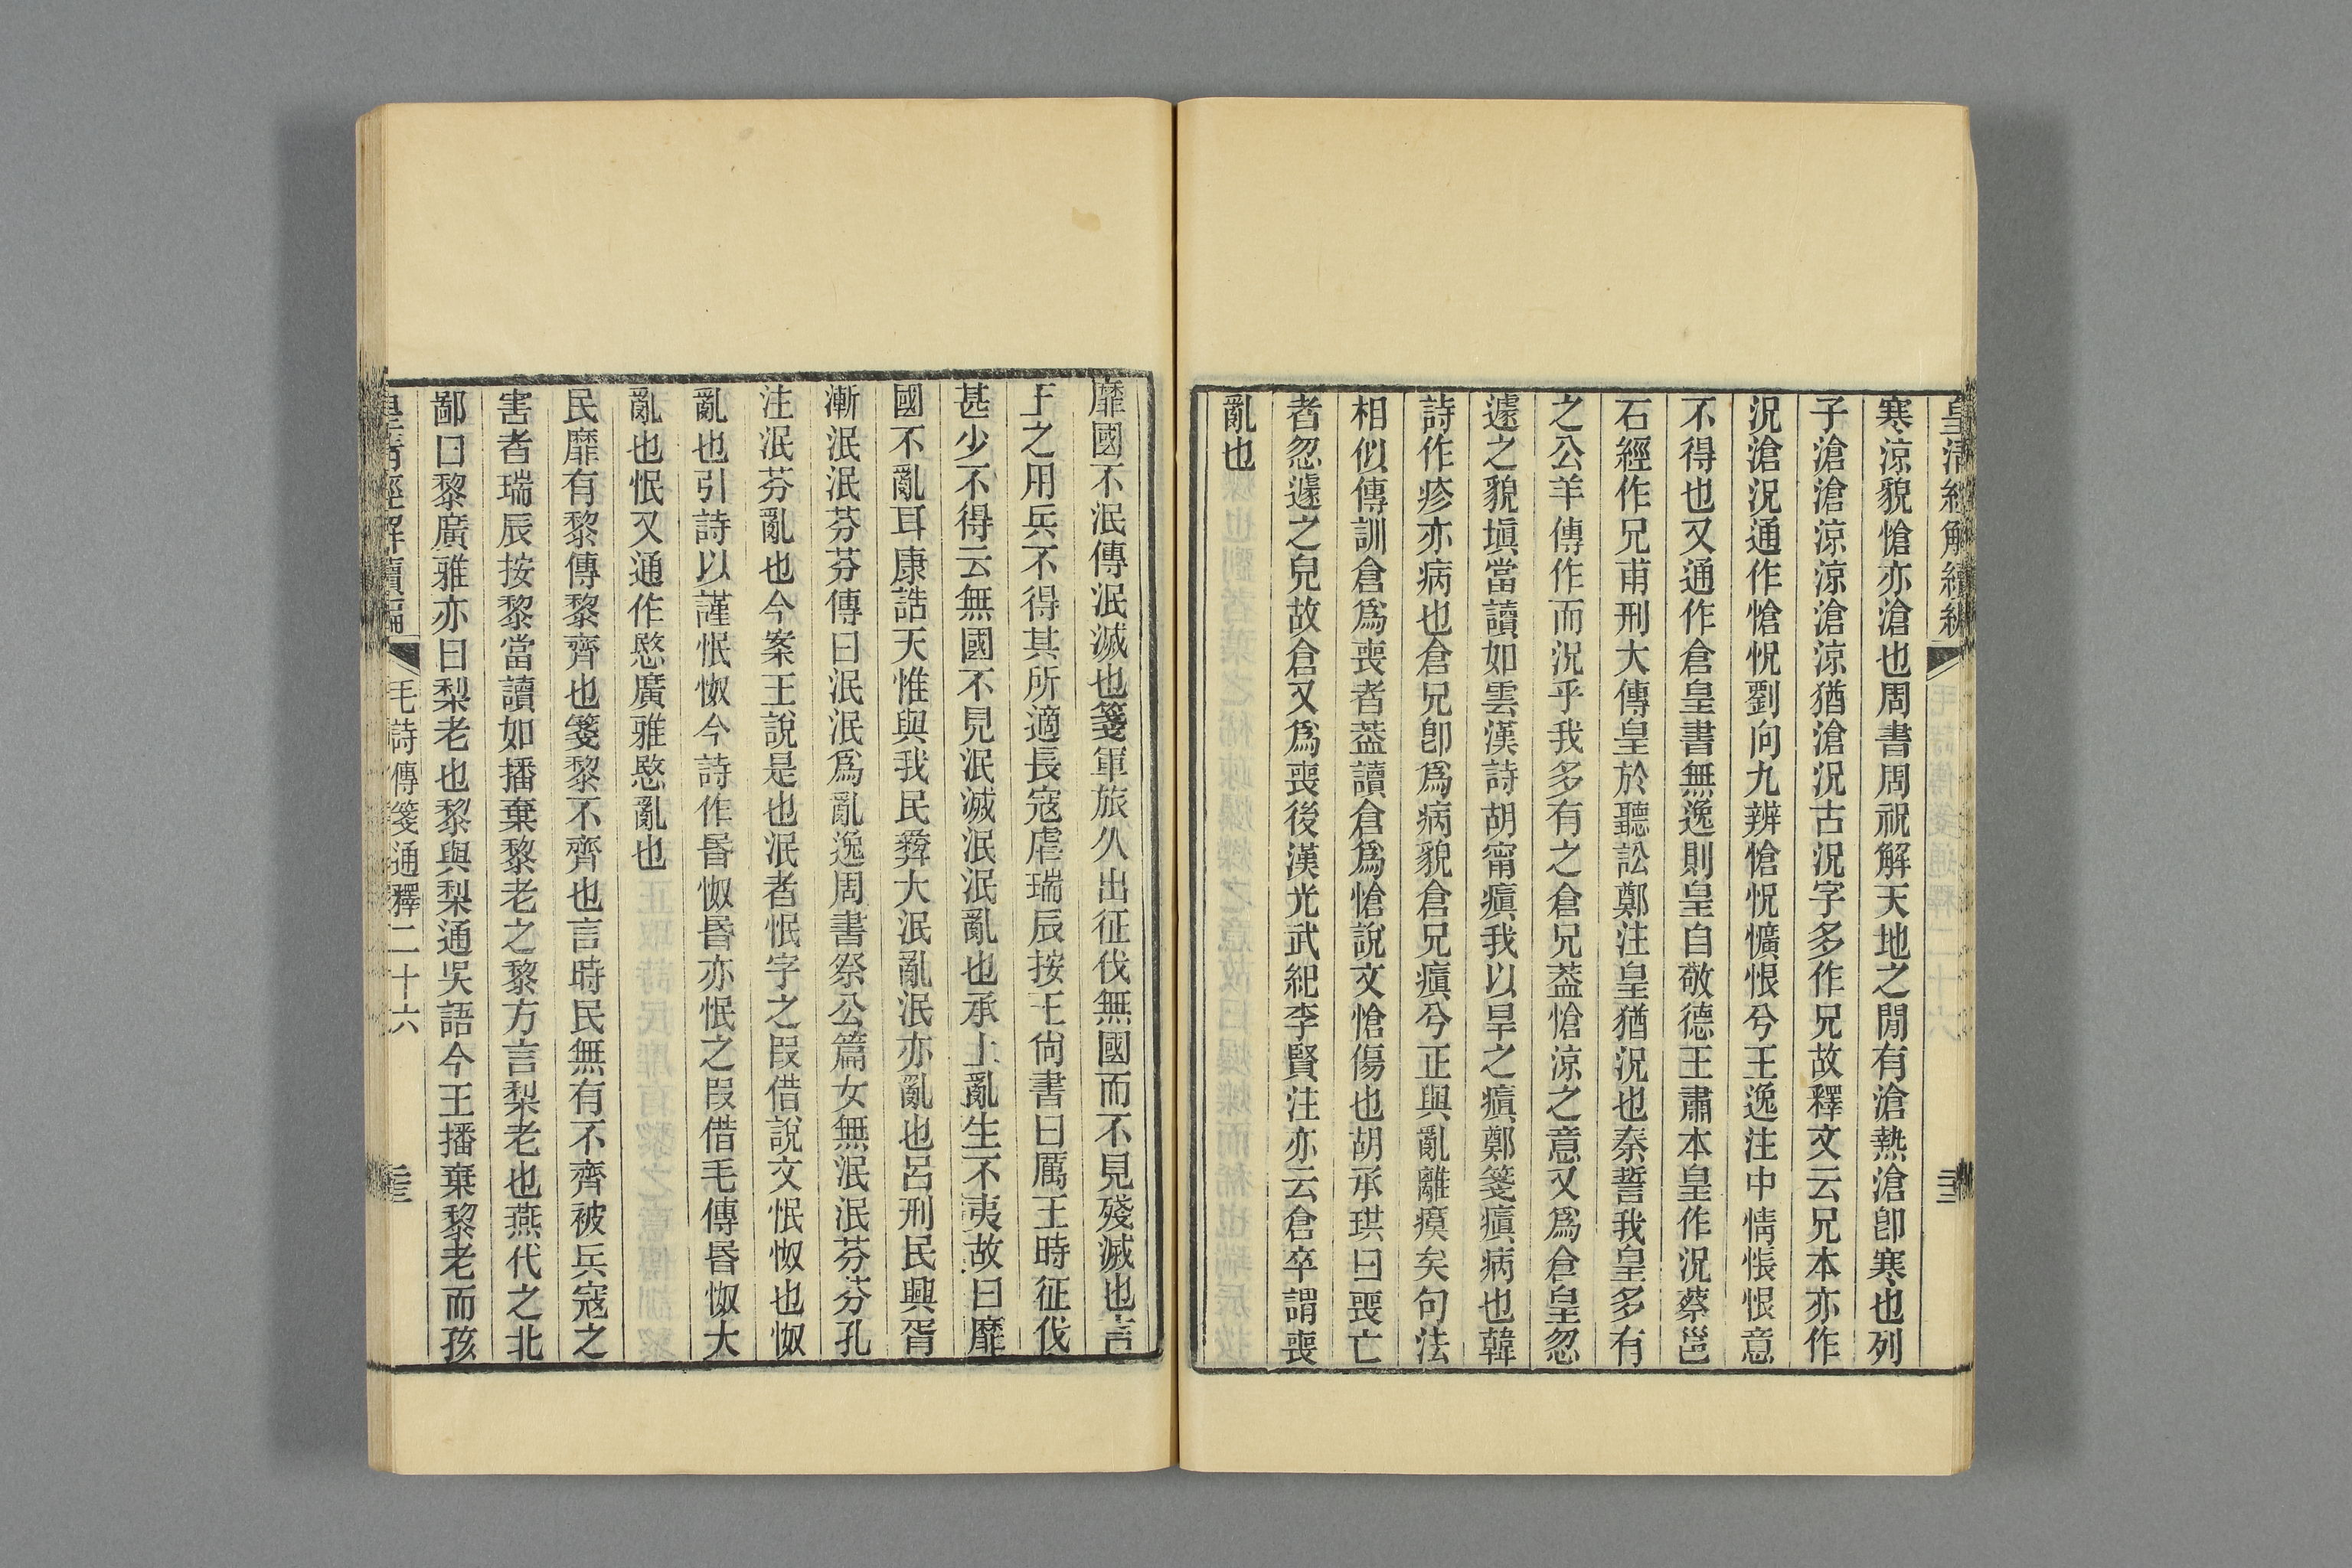 皇清經解續編
寒涼貌愴亦滄也周書周祝解天地之閒有滄熱滄卽寒也列
子滄滄涼涼滄涼猶滄況古況字多作兄故釋文云兄本亦作
況滄況通作愴怳劉向九辨愴怳懭悢兮王逸注中情悵恨意
不得也又通作倉皇書無逸則皇自敬德王肅本皇作況蔡邕
石經作兄甫刑大傳皇於聽訟鄭注皇猶況也秦誓我皇多有
之公羊傳作而況乎我多有之倉兄葢愴涼之意又爲倉皇忽
遽之貌塡當讀如雲漢詩胡甯瘨我以旱之瘨鄭箋瘨病也韓
詩作疹亦病也倉兄卽爲病貌倉兄瘨兮正與亂離瘼矣句法
相似傳訓倉爲喪者葢讀倉爲愴說文愴傷也胡承珙曰喪亡
者忽遽之皃故倉又爲喪後漢光武紀李賢注亦云倉卒謂喪
亂也
靡國不泯傳泯滅也箋軍旅久出征伐無國而不見殘滅也言
王之用兵不得其所適長寇虐瑞辰按王尙書曰厲王時征伐
甚少不得云無國不見泯滅泯泯亂也承上亂生不夷故曰靡
國不亂耳康誥天惟與我民彝大泯亂泯亦亂也呂刑民興胥
漸泯泯芬芬傳曰泯泯爲亂逸周書祭公篇女無泯泯芬芬孔
注泯芬亂也今案王說是也泯者怋字之叚借說文怋怓也怓
亂也引詩以謹怋怓今詩作昬怓昬亦怋之叚借毛傳昬怓大
亂也怋又通作愍廣雅愍亂也
民靡有黎傳黎齊也箋黎不齊也言時民無有不齊被兵寇之
害者瑞辰按黎當讀如播棄黎老之黎方言梨老也燕代之北
鄙曰黎廣雅亦曰梨老也黎與梨通吳語今王播棄黎老而孩
皇清經解續編
毛詩傳箋通釋二十六